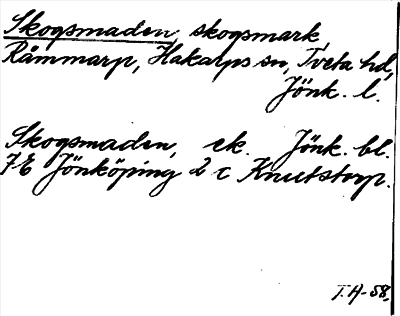 Skogsmaden, skogsmark
Råmmarp, Hakarps sn, Tveta hd,
Jönk. l.
Skogsmaden, ek. Jönk. bl.
7E Jönköping 2 c Knutstorp.
T.H-58,